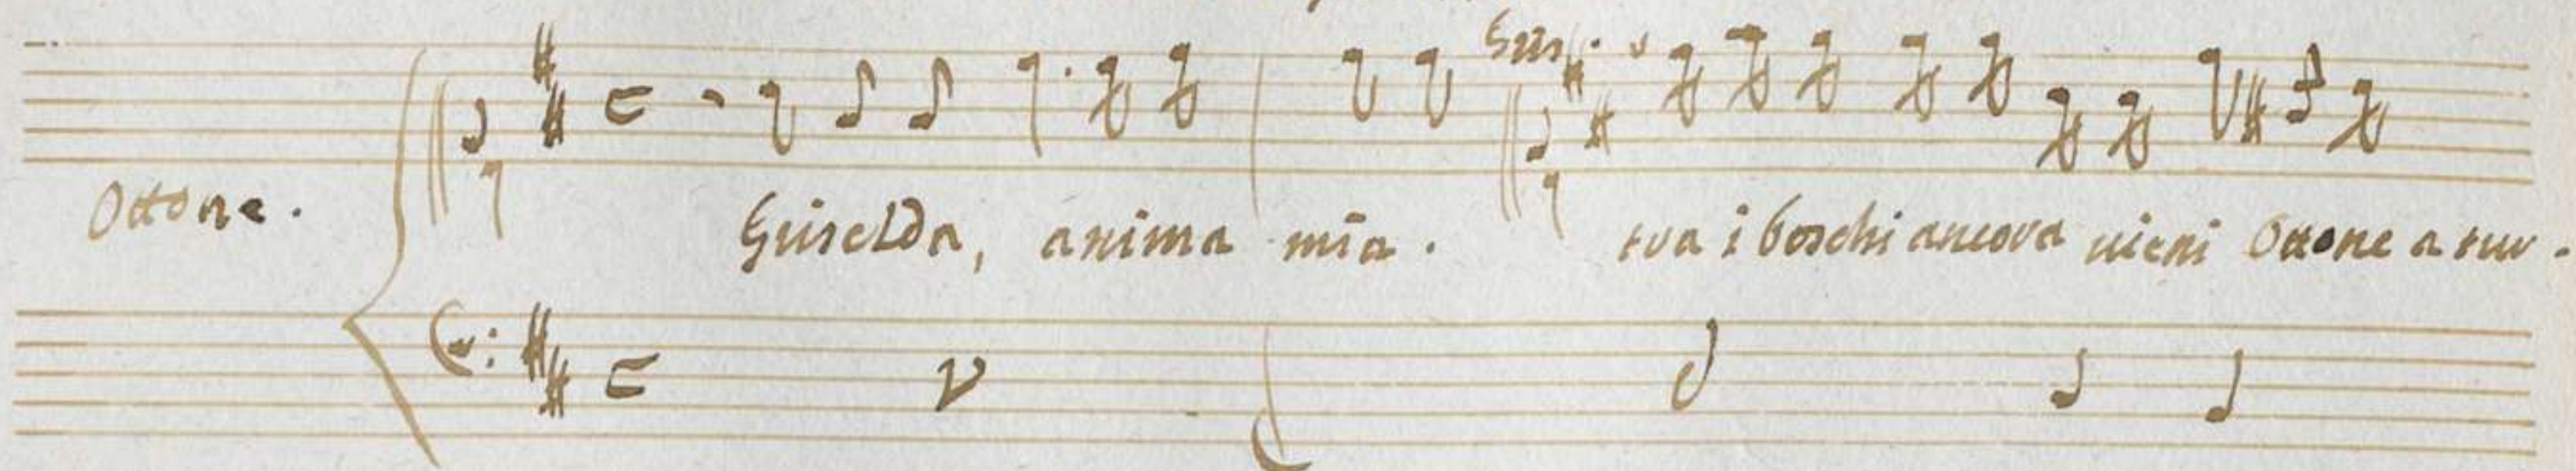 Gris.
Ottone. Griselda, anima mia. tra i boschi ancora uieni Ottone a tur-